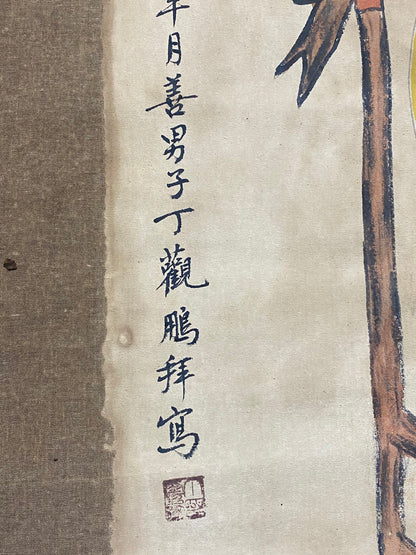 月善男子丁觀鵬拜寫